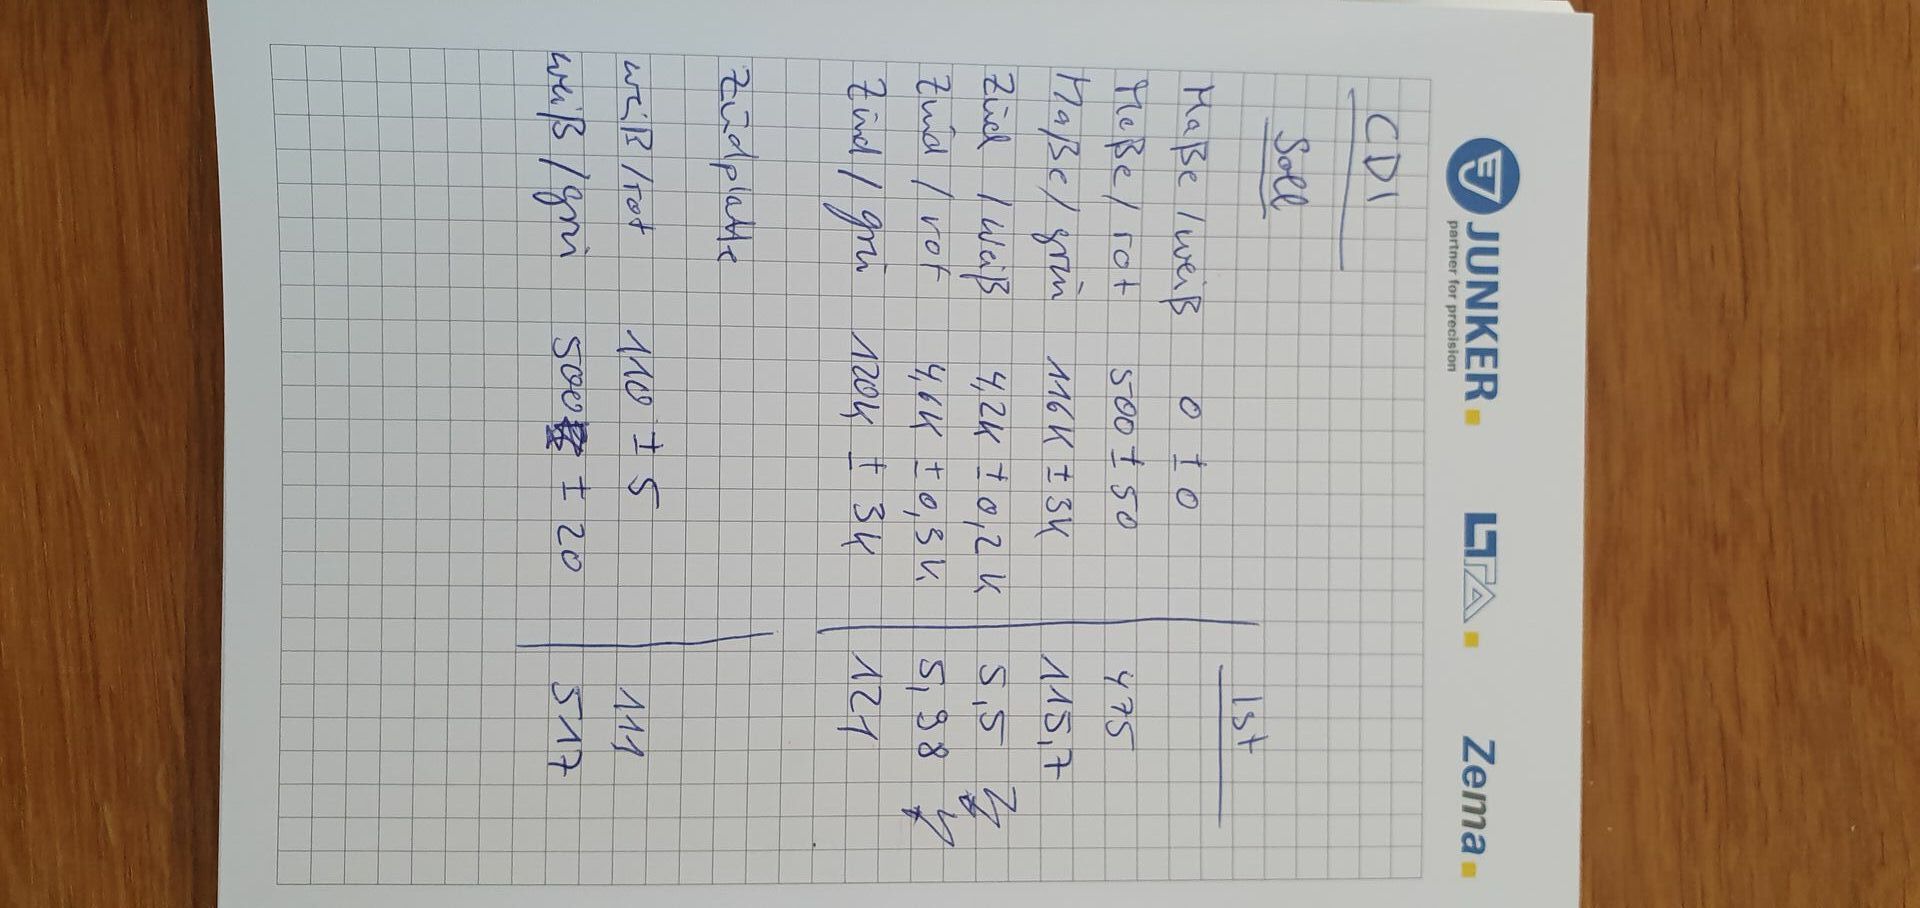 JUNKER
partner for precision
LTA
Zema
CDI
Soll
Ist
Maße / weiß 0 ± 0
Maße / rot 500 ± 50 475
Maße / grün 116K ± 3K 115,7
Zünd / weiß 4,2K ± 0,2K 5,5
Zünd / rot 4,6K ± 0,3K 5,98
Zünd / grün 120K ± 3K 121
Zündplatte
weiß / rot 110 ± 5 111
weiß / grün 500 ± 20 517